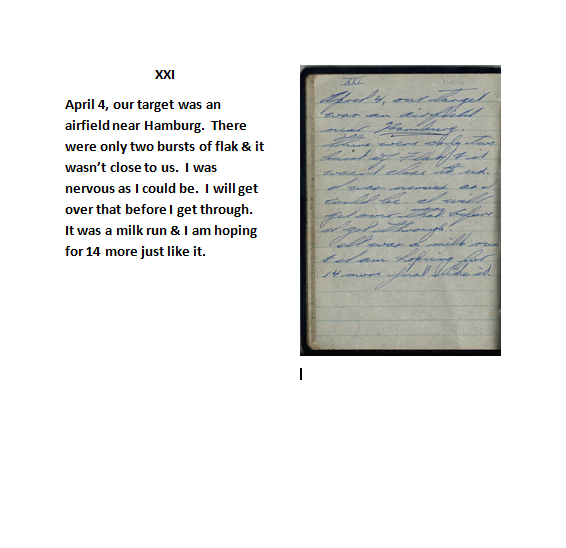 XXI
April 4, our target was an
airfield near Hamburg.  There
were only two bursts of flak & it
wasn’t close to us.  I was
nervous as I could be.  I will get
over that before I get through.
It was a milk run & I am hoping
for 14 more just like it.
XXI
April 4, our target
was an airfield
near Hamburg.
There were only two
burst of flak & it
wasn't close to us.
I was nervous as I
could be. I will
get over that before
I get through.
It was a milk run
& I am hoping for
14 more just like it.